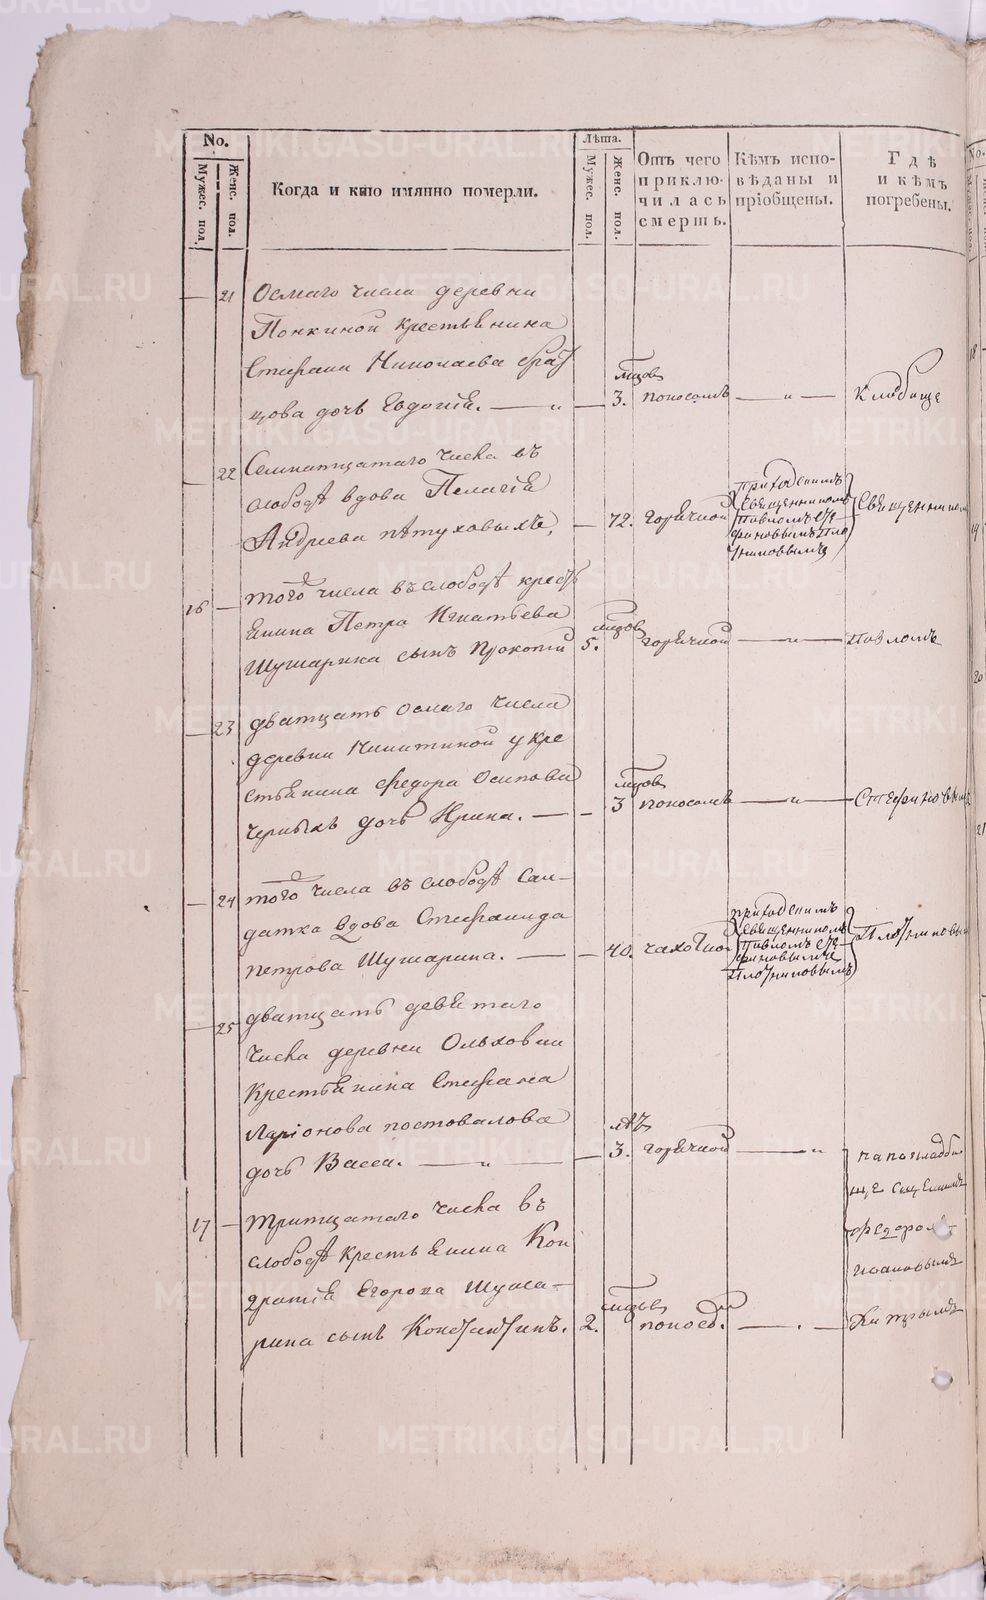 No.
Мужес. пол.
Женс. пол.
Когда и кто имянно померли.
Лѣта.
Мужес. пол.
Женс. пол.
Отъ чего приклю-
чилась смерть.
Кѣмъ испо-
вѣданы и
пріобщены.
Гдѣ
и кѣмъ
погребены.
— 21 Осмаго числа деревни
Понкиной крестьянина
Стефана Николаева
цова дочь Евдокія. — „ — мцовъ 3. поносомъ — „ — Кладбище
22 Семнатцатаго числа въ
слободѣ вдова Пелагія
Андреева Пѣтуховыхъ, — 72. горячкой
приходскимъ
священникомъ
Павломъ Сте
фановымъ Пло
тниковымъ
Священником
16 — того числа въ слободѣ крест
янина Петра Игнатьева
Шушарина сынъ Прокопій мцовъ 5. горячкой — „ — Павломъ
— 23 дватцать осмаго числа
деревни Никитиной у кре
стьянина Федора Осипова
Черныхъ дочь Ирина. — — мцовъ 3 поносомъ — „ — Стефановым
— 24 того числа въ слободѣ сал-
датка вдова Стефанида
Петрова Шушарина. — — 40. чахоткой
приходскимъ
священникомъ
Павломъ Сте-
фановымъ
Плотниковымъ
Плотниковым
— 25 дватцать девятаго
числа деревни Ольховки
крестьянина Стефана
Ларіонова Постовалова
дочь Васса. — „ — — лѣтъ 3. горячкой — „
на кладби
ще
Федоромъ
Ивановымъ
17 — тритцатаго числа въ
слободѣ крестьянина Кон
дратія Егорова Шуша-
рина сынъ Константинъ. мцовъ 2. поносом. — . —
METRIKI.GASO-URAL.RU